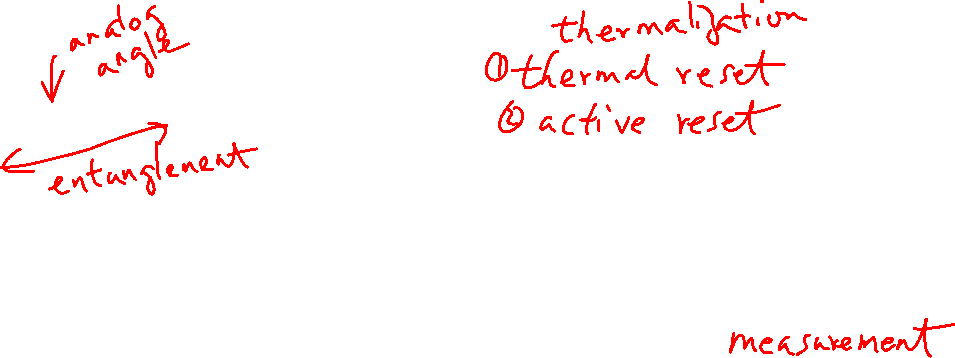 analog
angle
entanglement
thermalization
① thermal reset
② active reset
measurement